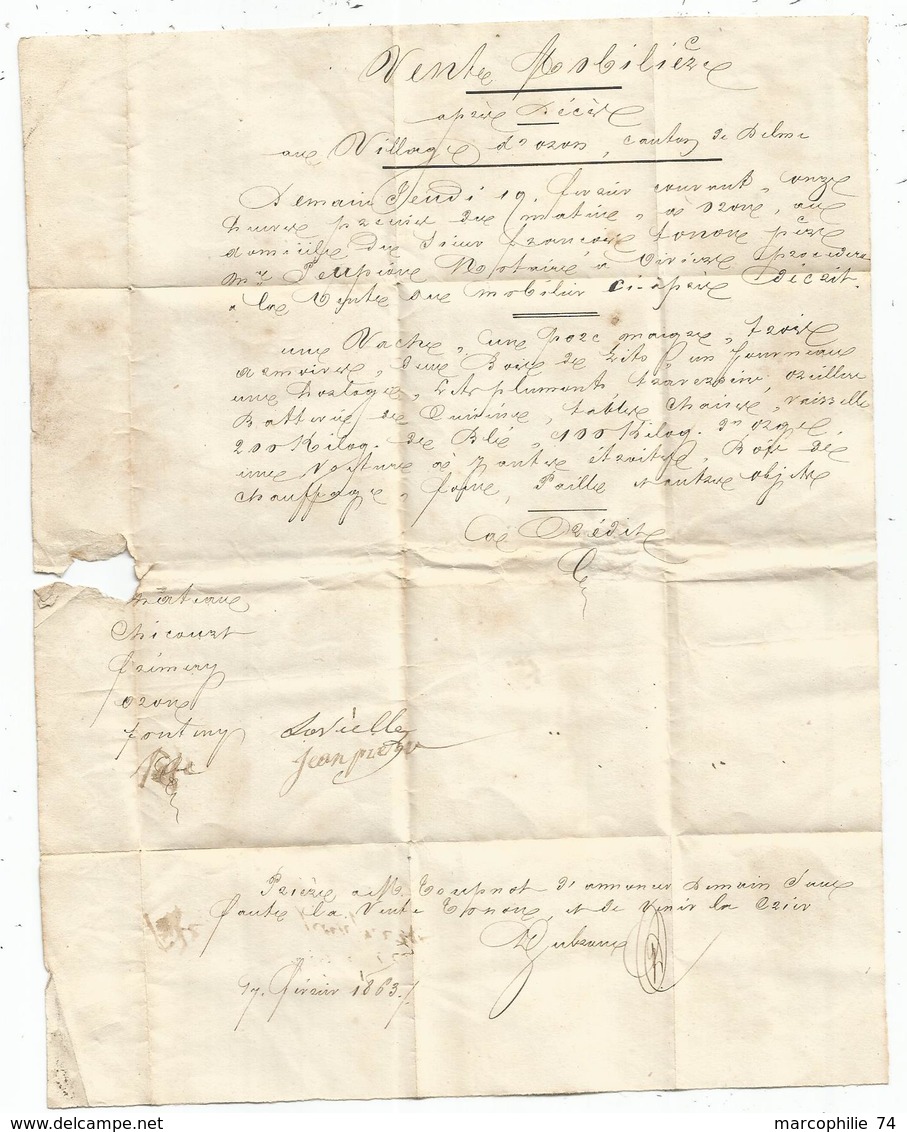 Vente Mobilière
après Décès
au Village d'Oron, canton de Delme
Demain Jeudi 19. février courant, onze
heures précises du matin, à Oron, au
domicile du sieur François Tonon père
Me. Notaire à Viviers procédera
à la Vente du mobilier ci-après Décrit.
une Vache, un porc maigre, trois
armoires, deux Bois de Lits, un fourneau
une horloge, Lits plumont traversins, oreillers
Batterie de Cuisine, tables chaises, vaisselle
200 Kilog. de Blé, 100 Kilog. d'orge
une Voiture à jantes étroites, Bois de
chauffage, foin, Paille et autres objets
à Crédit
Chicourt
frémery
oron
fontiny Lavielle
Jean
Prière à M. d'annoncer Demain sans
faute la Vente Tonon, et de venir la Crier
17. février 1863.
marcophilie 74